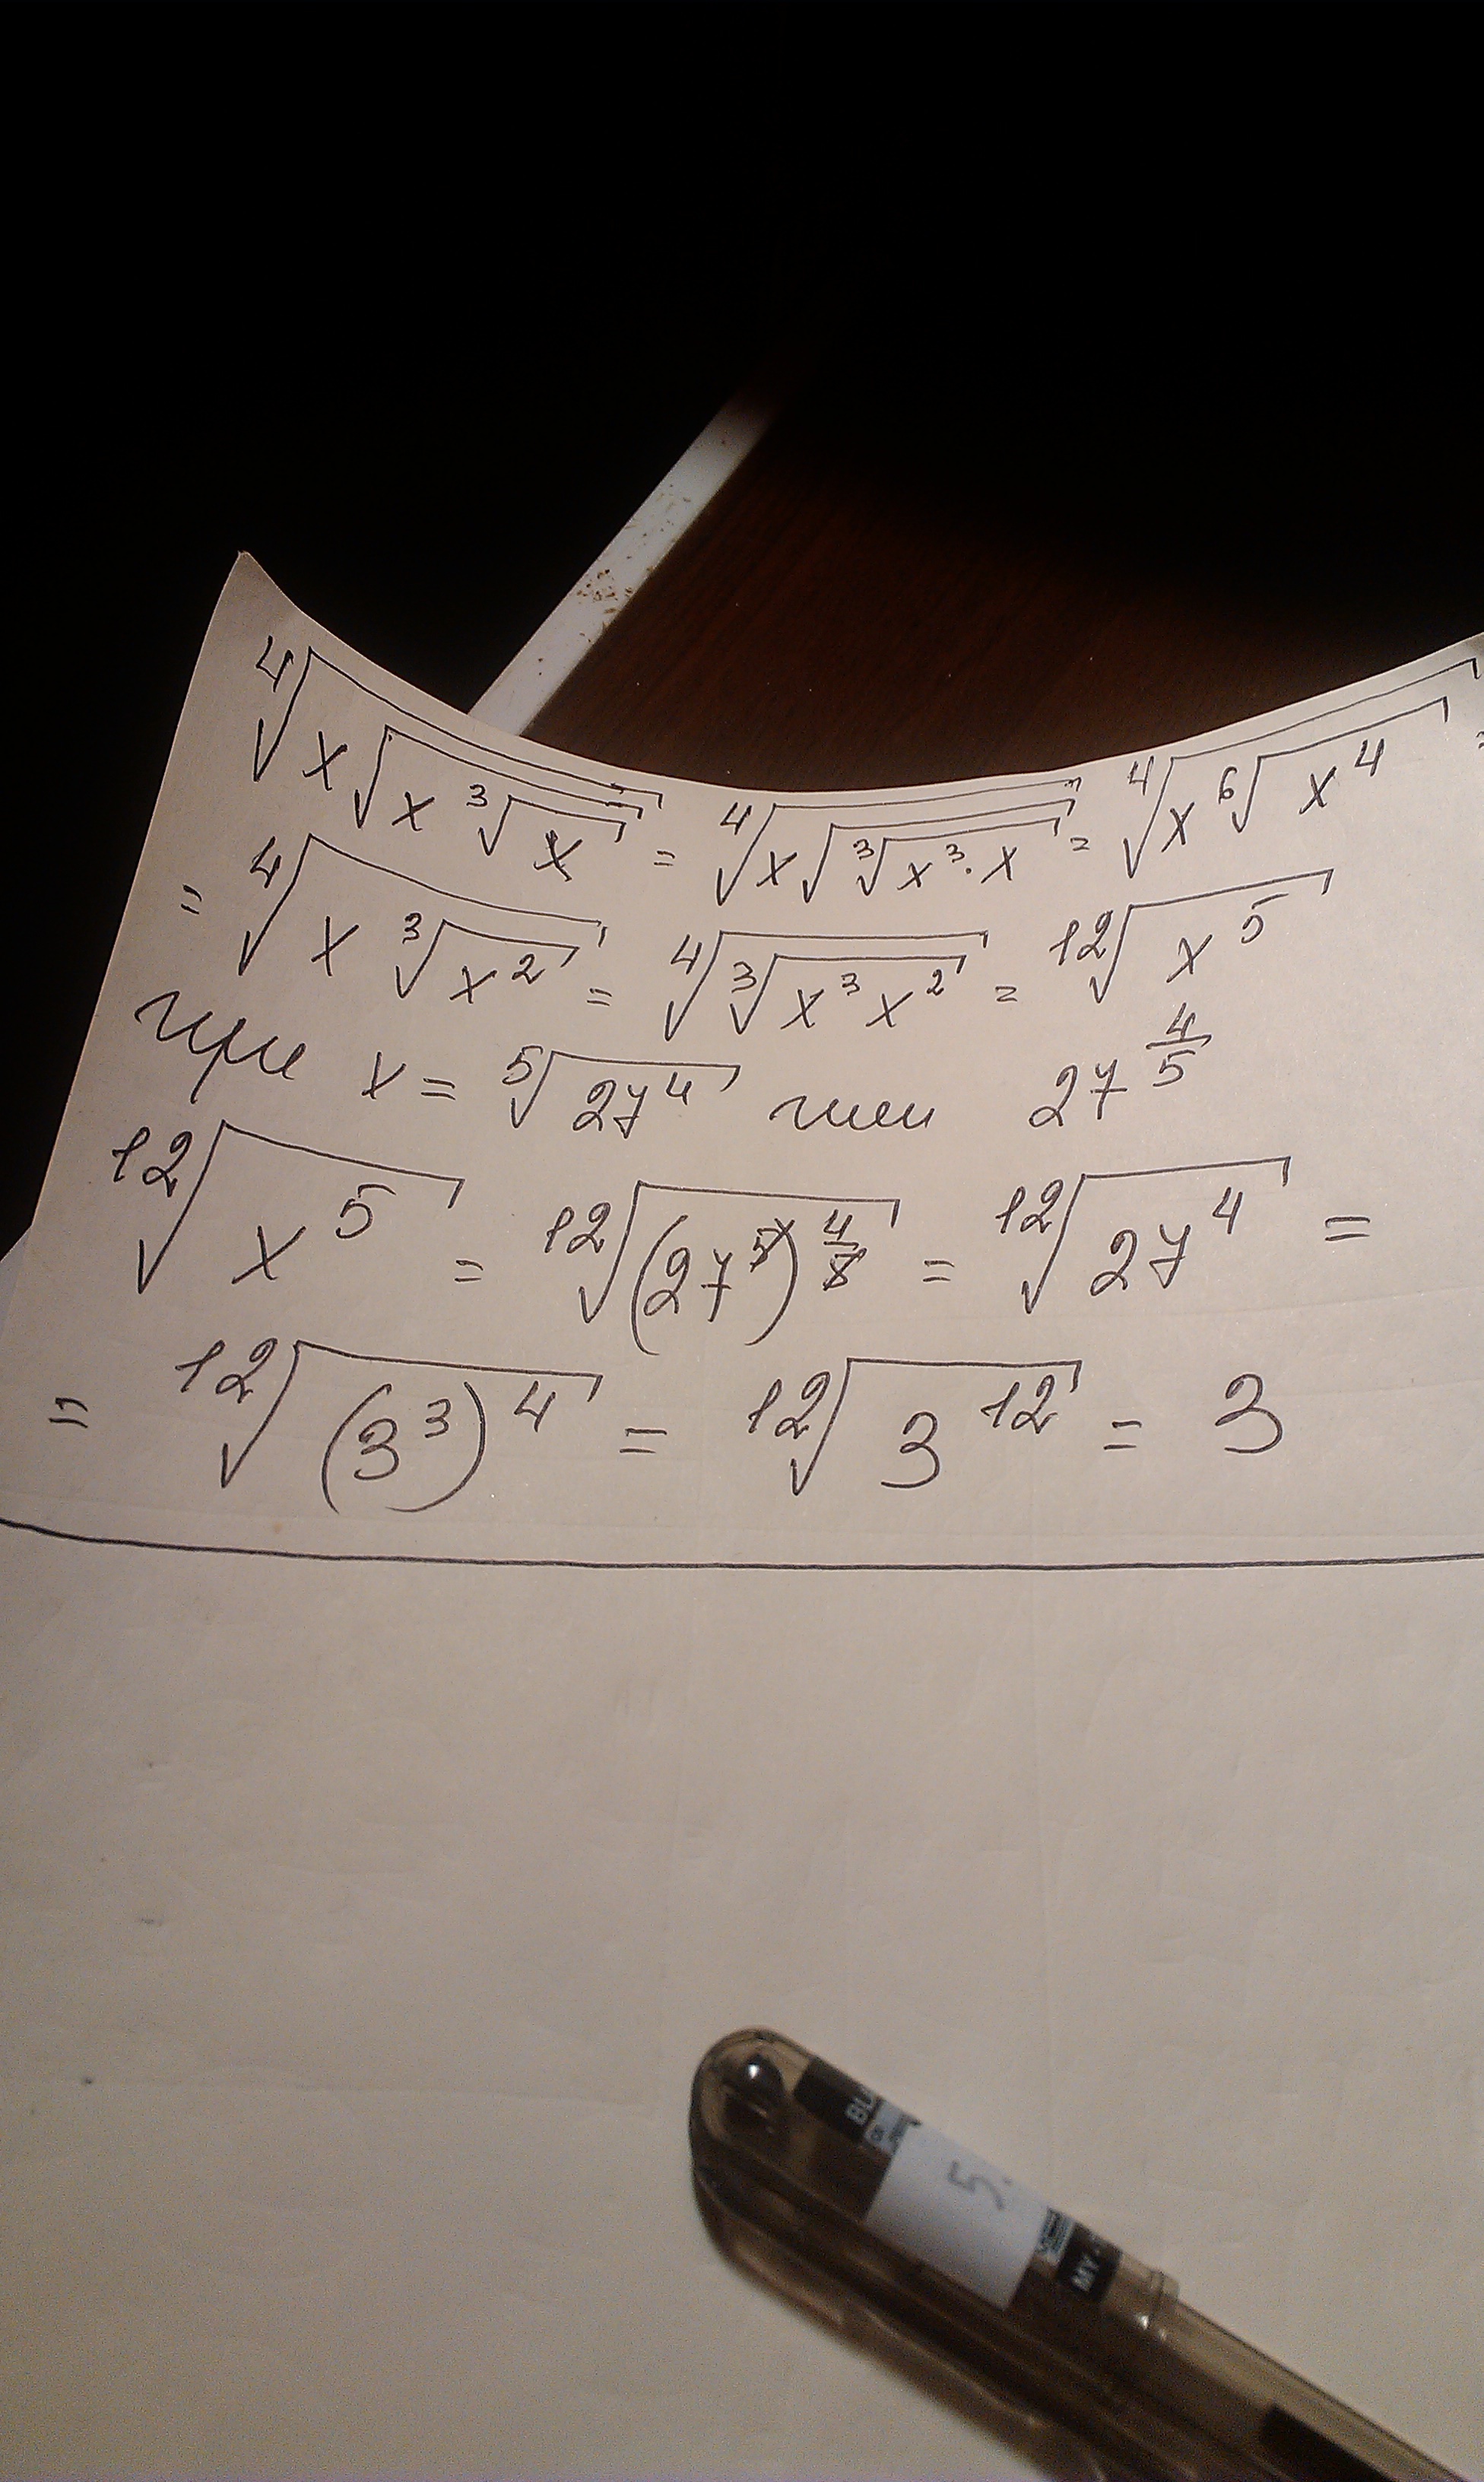 ⁴√(x√(x ³√x)) = ⁴√(x√(³√(x³·x))) = ⁴√(x ⁶√(x⁴)) =
= ⁴√(x ³√(x²)) = ⁴√(³√(x³x²)) = ¹²√(x⁵)
при x = ⁵√(27⁴) или 27^(4/5)
¹²√(x⁵) = ¹²√((27⁵)^(4/5)) = ¹²√(27⁴) =
= ¹²√((3³)⁴) = ¹²√(3¹²) = 3
5.
MY